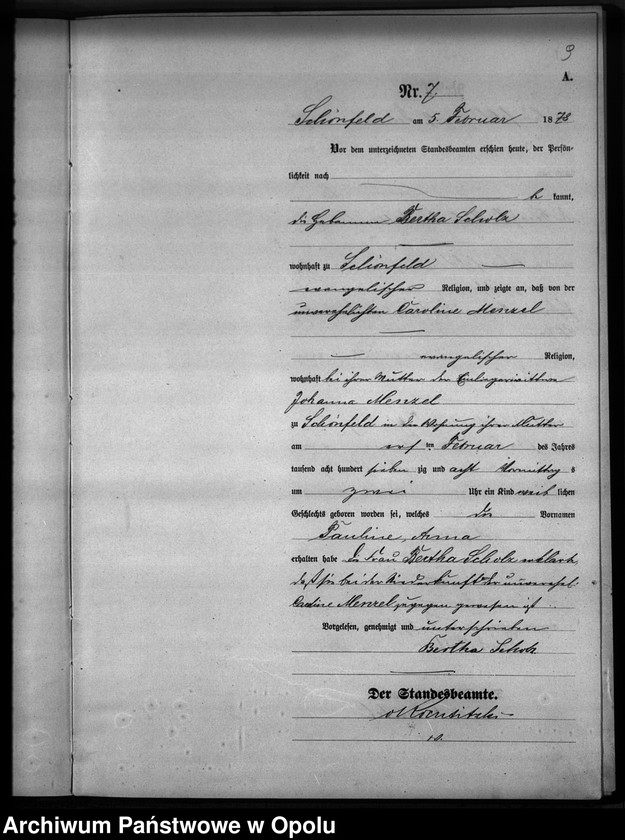 9
A.
Nr. 7
Schönfeld am 5. Februar 1878
Vor dem unterzeichneten Standesbeamten erschien heute, der Persön-
lichkeit nach
kannt,
die Hebamme Bertha Scholz
wohnhaft zu Schönfeld
evangelischer Religion, und zeigte an, daß von der
unverehelichten Caroline Menzel
evangelischer Religion,
wohnhaft bei ihrer Mutter der Einliegerwittwe
Johanna Menzel
zu Schönfeld in der Wohnung ihrer Mutter
am ersten Februar des Jahres
tausend acht hundert siebenzig und acht Vormittags
um zwei Uhr ein Kind weiblichen
Geschlechts geboren worden sei, welches die Vornamen
Pauline, Anna
erhalten habe. Die Frau Bertha Scholz erklärte,
daß sie bei der Niederkunft der unverehel.
Caroline Menzel zugegen gewesen ist.
Vorgelesen, genehmigt und unterschrieben
Bertha Scholz
Der Standesbeamte.
Archiwum Państwowe w Opolu